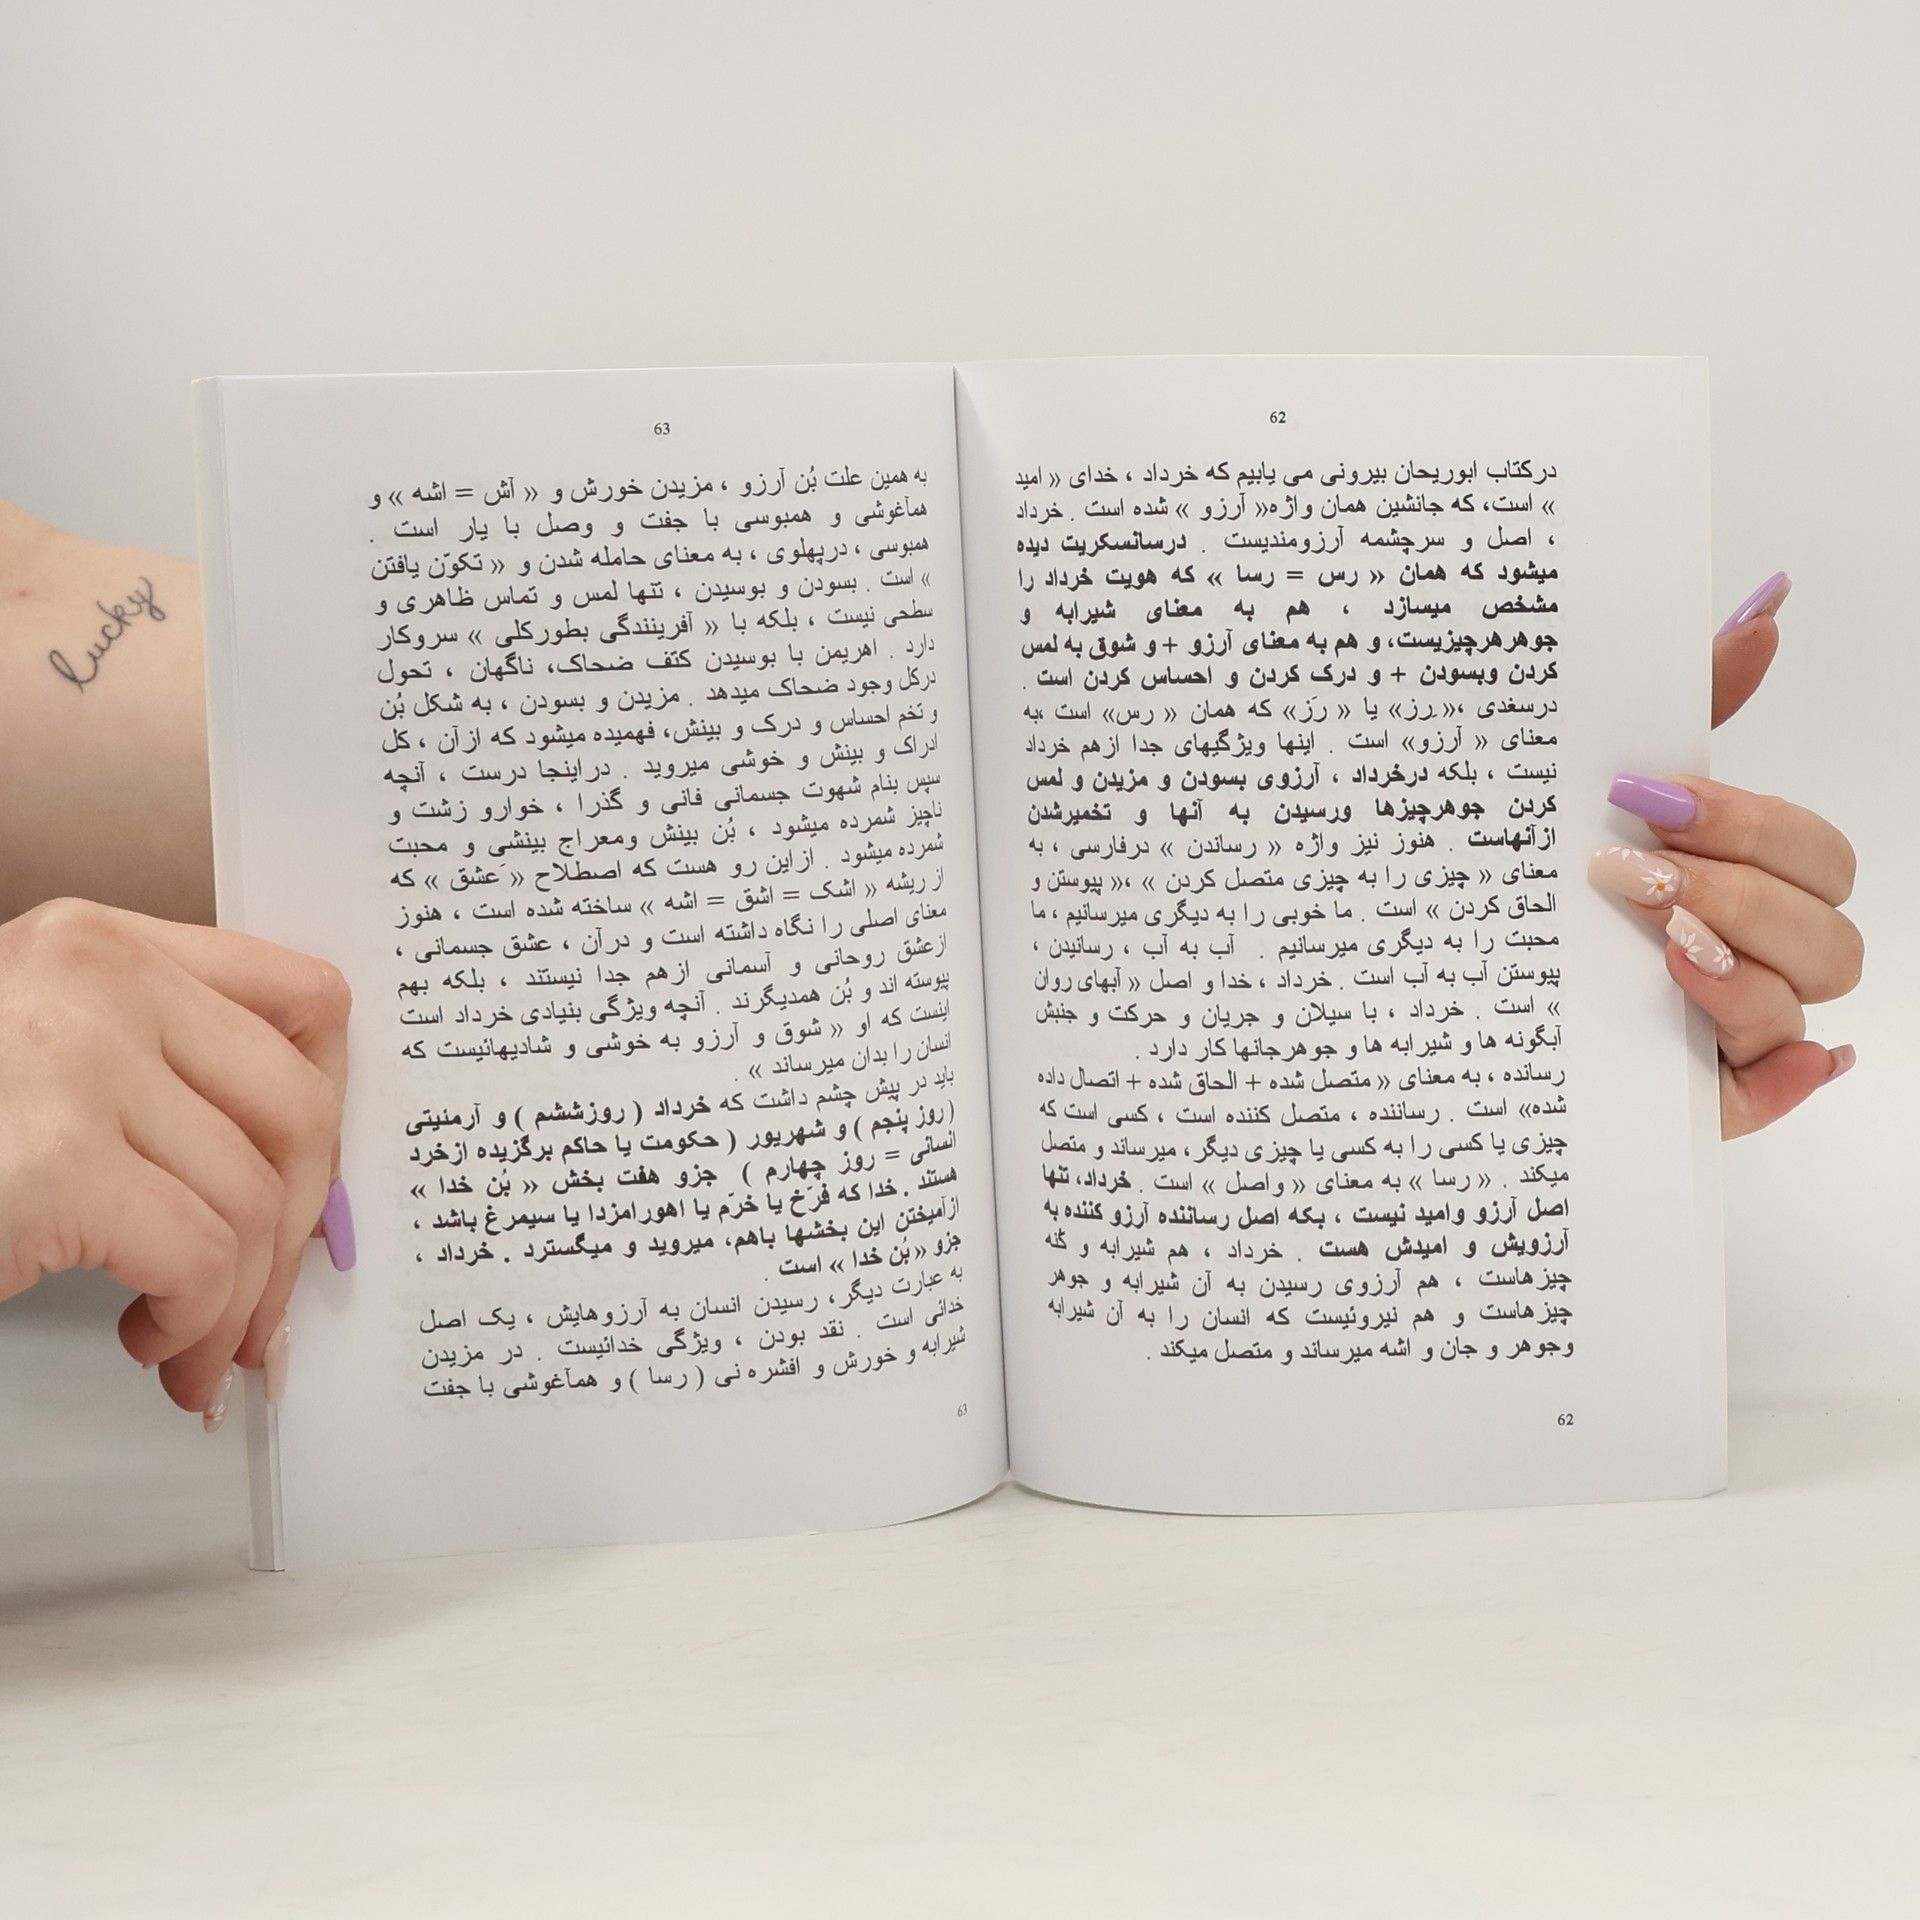 62
درکتاب ابوریحان بیرونی می یابیم که خرداد ، خدای « امید
» است، که جانشین همان واژه« آرزو » شده است . خرداد
، اصل و سرچشمه آرزومندیست . درسانسکریت دیده
میشود که همان « رس = رسا » که هویت خرداد را
مشخص میسازد ، هم به معنای شیرابه و
جوهرهرچیزیست، و هم به معنای آرزو + و شوق به لمس
کردن وبسودن + و درک کردن و احساس کردن است .
درسغدی ،« رِز» یا « رَز» که همان « رس» است ،به
معنای « آرزو» است . اینها ویژگیهای جدا ازهم خرداد
نیست ، بلکه درخرداد ، آرزوی بسودن و مزیدن و لمس
کردن جوهرچیزها ورسیدن به آنها و تخمیرشدن
ازآنهاست . هنوز نیز واژه « رساندن » درفارسی ، به
معنای « چیزی را به چیزی متصل کردن » ،« پیوستن و
الحاق کردن » است . ما خوبی را به دیگری میرسانیم ، ما
محبت را به دیگری میرسانیم . آب به آب ، رسانیدن ،
پیوستن آب به آب است . خرداد ، خدا و اصل « آبهای روان
» است . خرداد ، با سیلان و جریان و حرکت و جنبش
آبگونه ها و شیرابه ها و جوهرجانها کار دارد .
رسانده ، به معنای « متصل شده + الحاق شده + اتصال داده
شده» است . رساننده ، متصل کننده است ، کسی است که
چیزی یا کسی را به کسی یا چیزی دیگر، میرساند و متصل
میکند . « رسا » به معنای « واصل » است . خرداد، تنها
اصل آرزو وامید نیست ، بکه اصل رساننده آرزو کننده به
آرزویش و امیدش هست . خرداد ، هم شیرابه و کُنه
چیزهاست ، هم آرزوی رسیدن به آن شیرابه و جوهر
چیزهاست و هم نیروئیست که انسان را به آن شیرابه
وجوهر و جان و اشه میرساند و متصل میکند .
62
63
به همین علت بُن آرزو ، مزیدن خورش و « آش = اشه » و
همآغوشی و همبوسی با جفت و وصل با یار است .
همبوسی ، درپهلوی ، به معنای حامله شدن و « تکوّن یافتن
» است . بسودن و بوسیدن ، تنها لمس و تماس ظاهری و
سطحی نیست ، بلکه با « آفرینندگی بطورکلی » سروکار
دارد . اهریمن با بوسیدن کتف ضحاک، ناگهان ، تحول
درکل وجود ضحاک میدهد . مزیدن و بسودن ، به شکل بُن
و تخم احساس و درک و بینش، فهمیده میشود که ازآن ، کل
ادراک و بینش و خوشی میروید . دراینجا درست ، آنچه
سپس بنام شهوت جسمانی فانی و گذرا ، خوارو زشت و
ناچیز شمرده میشود ، بُن بینش ومعراج بینشی و محبت
شمرده میشود . ازاین رو هست که اصطلاح « عَشق » که
از ریشه « اشک = اشق = اشه » ساخته شده است ، هنوز
معنای اصلی را نگاه داشته است و درآن ، عشق جسمانی ،
ازعشق روحانی و آسمانی ازهم جدا نیستند ، بلکه بهم
پیوسته اند و بُن همدیگرند . آنچه ویژگی بنیادی خرداد است
اینست که او « شوق و آرزو به خوشی و شادیهائیست که
انسان را بدان میرساند » .
باید در پیش چشم داشت که خرداد ( روزششم ) و آرمنیتی
(روز پنجم ) و شهریور ( حکومت یا حاکم برگزیده ازخرد
انسانی = روز چهارم ) جزو هفت بخش « بُن خدا »
هستند . خدا که فرّخ یا خرّم یا اهورامزدا یا سیمرغ باشد ،
ازآمیختن این بخشها باهم، میروید و میگسترد . خرداد ،
جزو « بُن خدا » است .
به عبارت دیگر، رسیدن انسان به آرزوهایش ، یک اصل
خدائی است . نقد بودن ، ویژگی خدائیست . در مزیدن
شیرابه و خورش و افشره نی ( رسا ) و همآغوشی با جفت
63
lucky